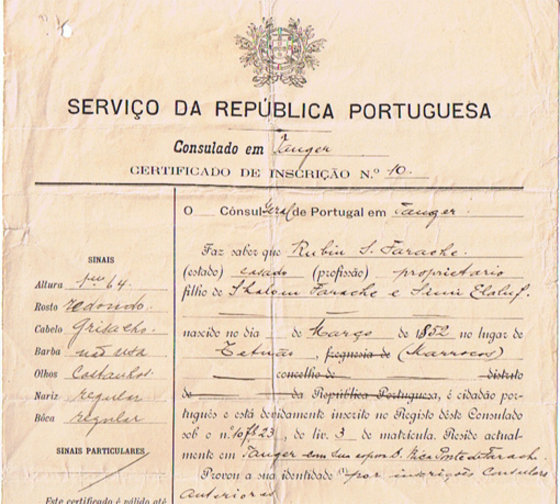 SERVIÇO DA REPÚBLICA PORTUGUESA
Consulado em Tanger
CERTIFICADO DE INSCRIÇÃO N.º 10.
SINAIS
Altura 1m 64.
Rosto redondo.
Cabelo grisalho.
Barba não usa
Olhos castanhos.
Nariz regular
Bôca regular
SINAIS PARTICULARES
Este certificado é válido até
O Cônsul Geral de Portugal em Tanger.
Faz saber que Rubin S. Farache.
(estado) casado (profissão) proprietario
filho de Shalom Farache e
nascido no dia de Março de 1852 no lugar de
Tetuão, freguesia de (Marrocos)
concelho de distrito
de da República Portuguesa, é cidadão por-
tuguês e está devidamente inscrito no Registo dêste Consulado
sob o n.º 10 fls 23, de liv. 3 de matrícula. Reside actual-
mente em Tanger com sua
Provou a sua identidade (1) por inscrições consulares
anteriores